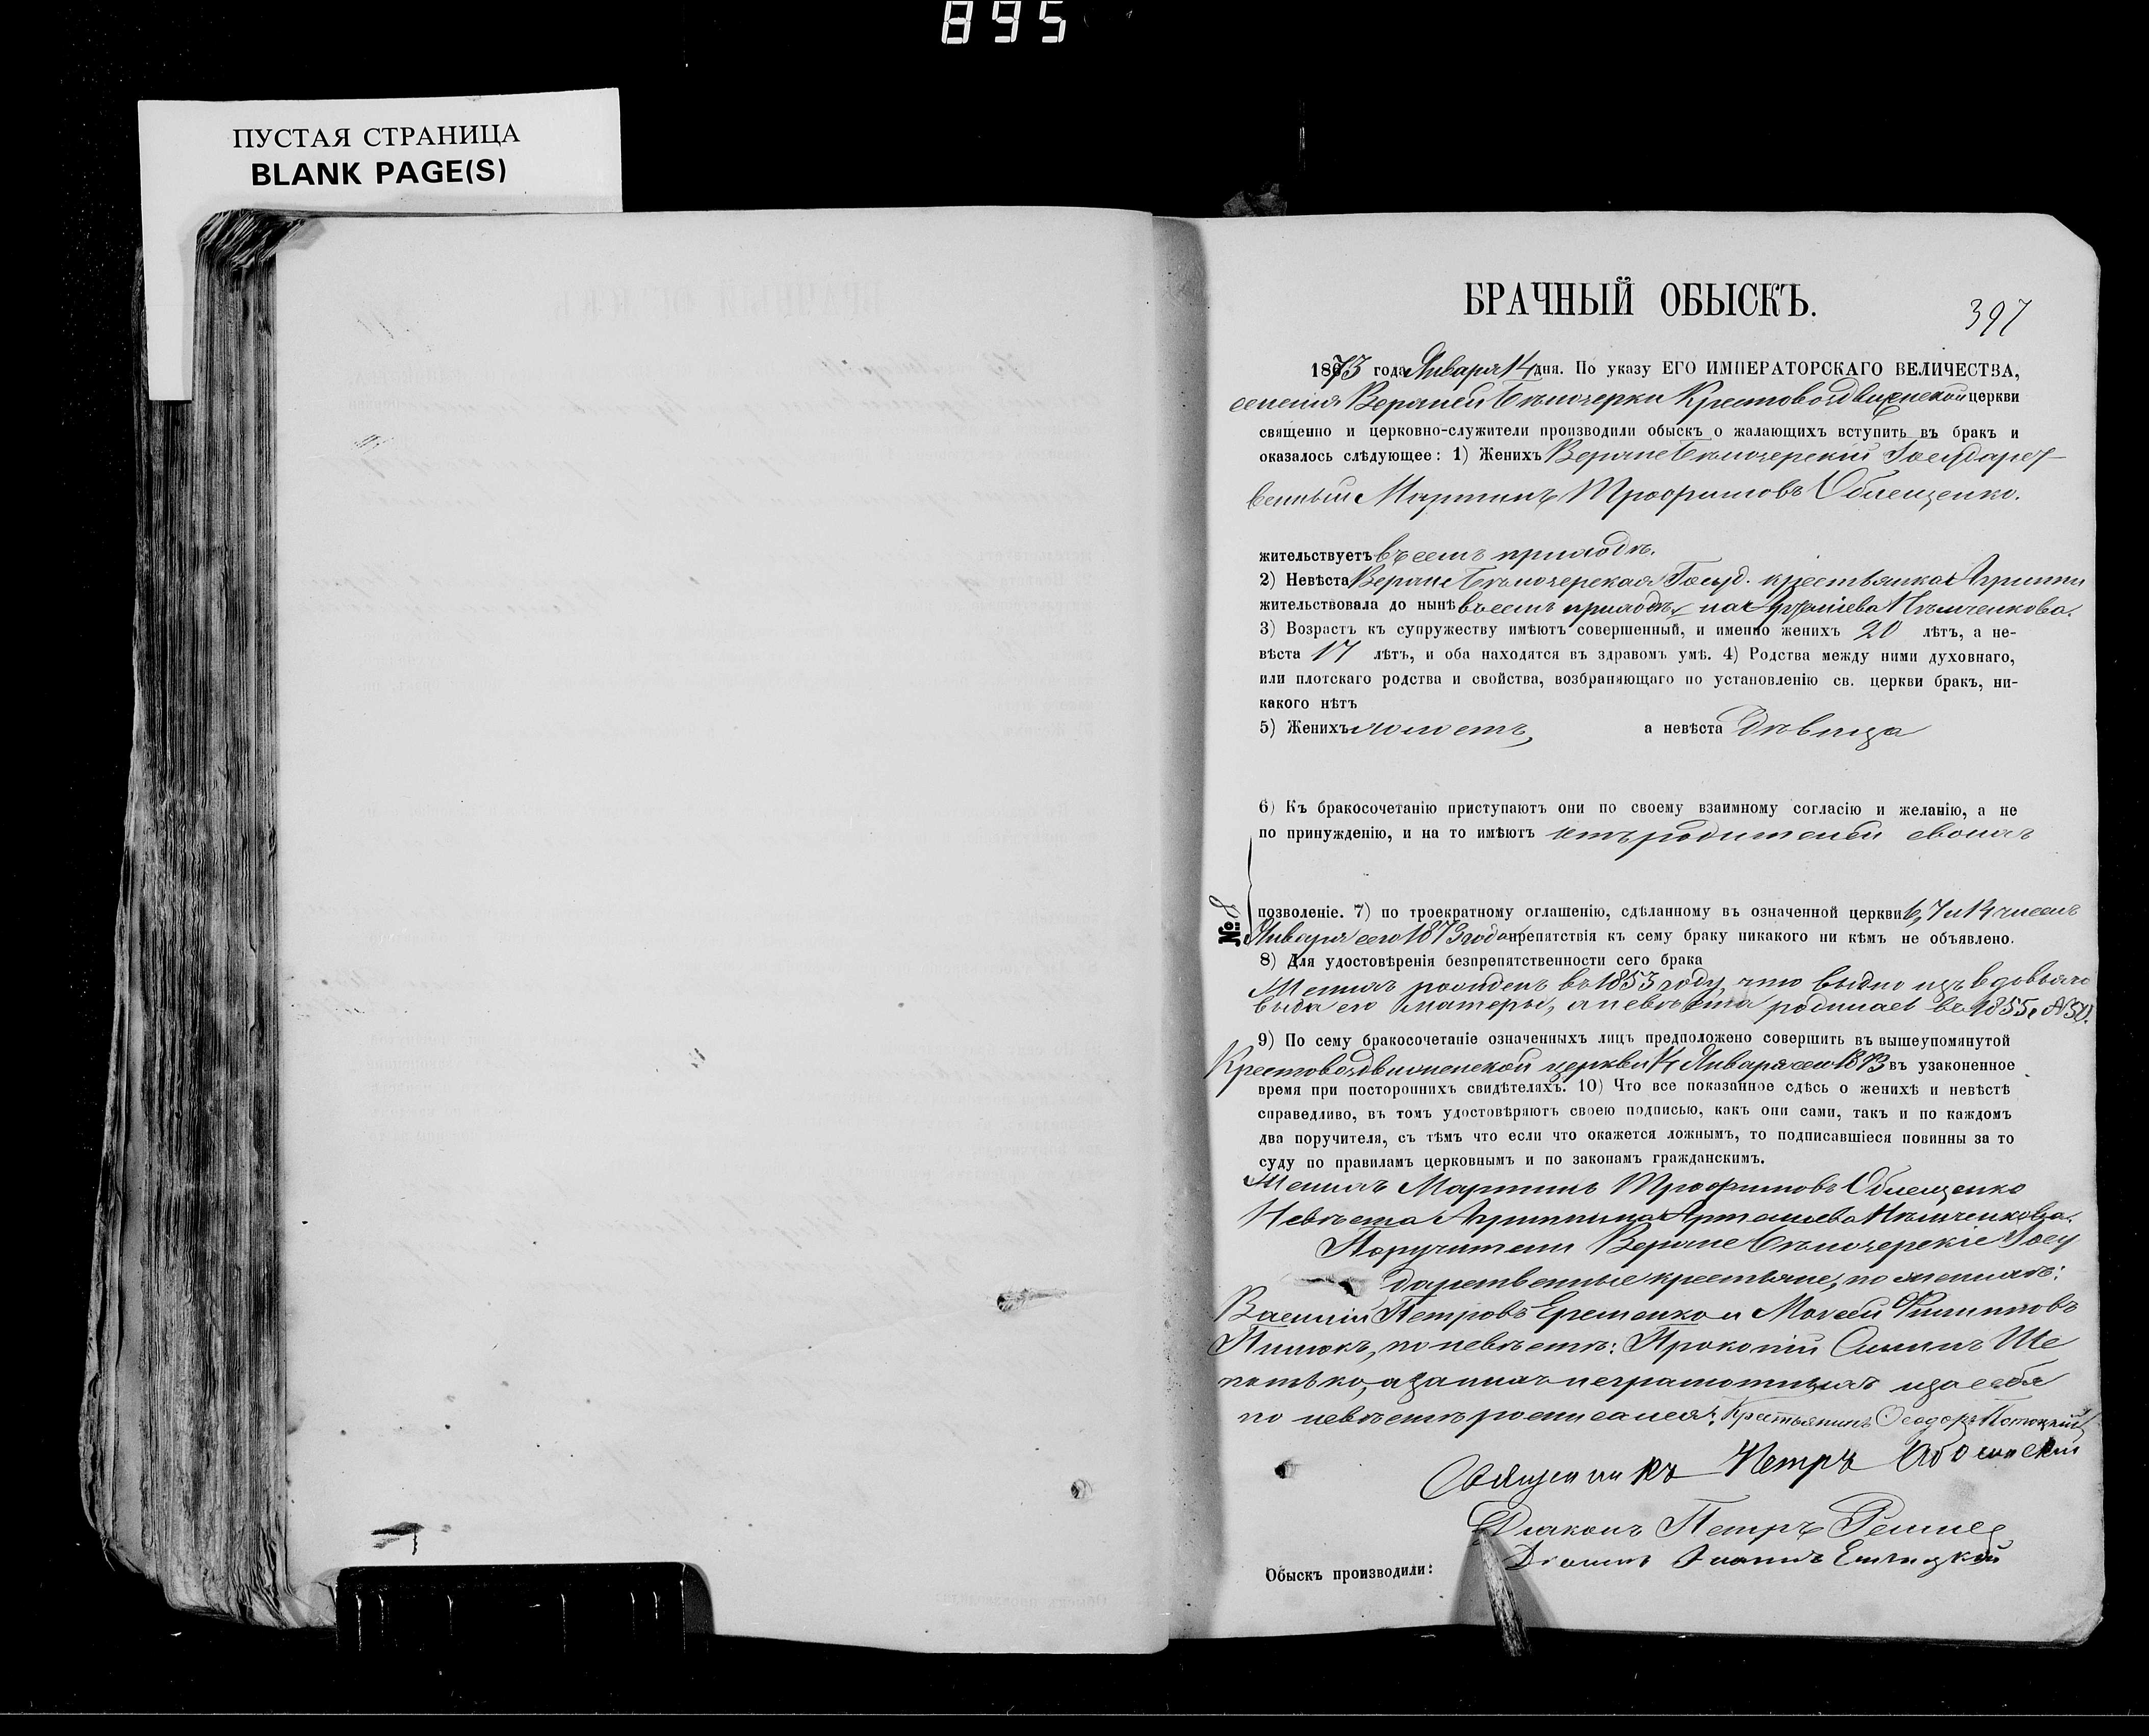 895
ПУСТАЯ СТРАНИЦА
BLANK PAGE(S)
БРАЧНЫЙ ОБЫСКЪ.
397
1873 года Января 14 дня. По указу ЕГО ИМПЕРАТОРСКАГО ВЕЛИЧЕСТВА,
селенія Верхней Бѣлозерки Крестовоздвиженской церкви
священно и церковно-служители производили обыскъ о жалающихъ вступить въ бракъ и
оказалось слѣдующее: 1) Женихъ Верхне Бѣлозерскій Государст-
венный Мартинъ Трофимовъ Облещенко.
жительствуетъ въ семъ приходѣ.
2) Невѣста Верхне Бѣлозерская Госуд. крестьянка Агриппи
жительствовала до нынѣ въ семъ приходѣ, на Артемiева Нѣмченкова.
3) Возрастъ къ супружеству имѣютъ совершенный, и именно женихъ 20 лѣтъ, а не-
вѣста 17 лѣтъ, и оба находятся въ здравомъ умѣ. 4) Родства между ними духовнаго,
или плотскаго родства и свойства, возбраняющаго по установленію св. церкви бракъ, ни-
какого нѣтъ
5) Женихъ холостъ, а невѣста дѣвица
6) Къ бракосочетанію приступаютъ они по своему взаимному согласію и желанію, а не
по принужденію, и на то имѣютъ отъ родителей своихъ
№ 8
позволеніе. 7) по троекратному оглашенію, сдѣланному въ означенной церкви 6, 7 и 14 числъ
Января сего 1873 года препятствія къ сему браку никакого ни кѣмъ не объявлено.
8) Для удостовѣренія безпрепятственности сего брака
Женихъ рожденъ въ 1853 году, что выдно изъ вдовьяго
выда его матеры, а невѣста родилась въ 1855 г. №50.
9) По сему бракосочетаніе означенныхъ лицъ предположено совершить въ вышеупомянутой
Крестовоздвиженской церкви 14 Января сего 1873 въ узаконенное
время при постороннихъ свидѣтеляхъ. 10) Что все показанное сдѣсь о женихѣ и невѣстѣ
справедливо, въ томъ удостовѣряютъ своею подписью, какъ они сами, такъ и по каждомъ
два поручителя, съ тѣмъ что если что окажется ложнымъ, то подписавшіеся повинны за то
суду по правиламъ церковнымъ и по законамъ гражданскимъ.
Женихъ Мартинъ Трофимовъ Облещенко
Невѣста Агриппина Артемiева Нѣмченкова.
Поручители Верхне Бѣлозерскіе Госу
дарственные крестьяне, по женихѣ:
Василій Петровъ Еременко и Моисей Филиповъ
по невѣстѣ: Прокопій
а за нихъ неграмотныхъ и за себя
по невѣстѣ росписался: Крестьянинъ Ѳеодоръ
Священникъ Петръ
Діаконъ Петръ
Обыскъ производили: